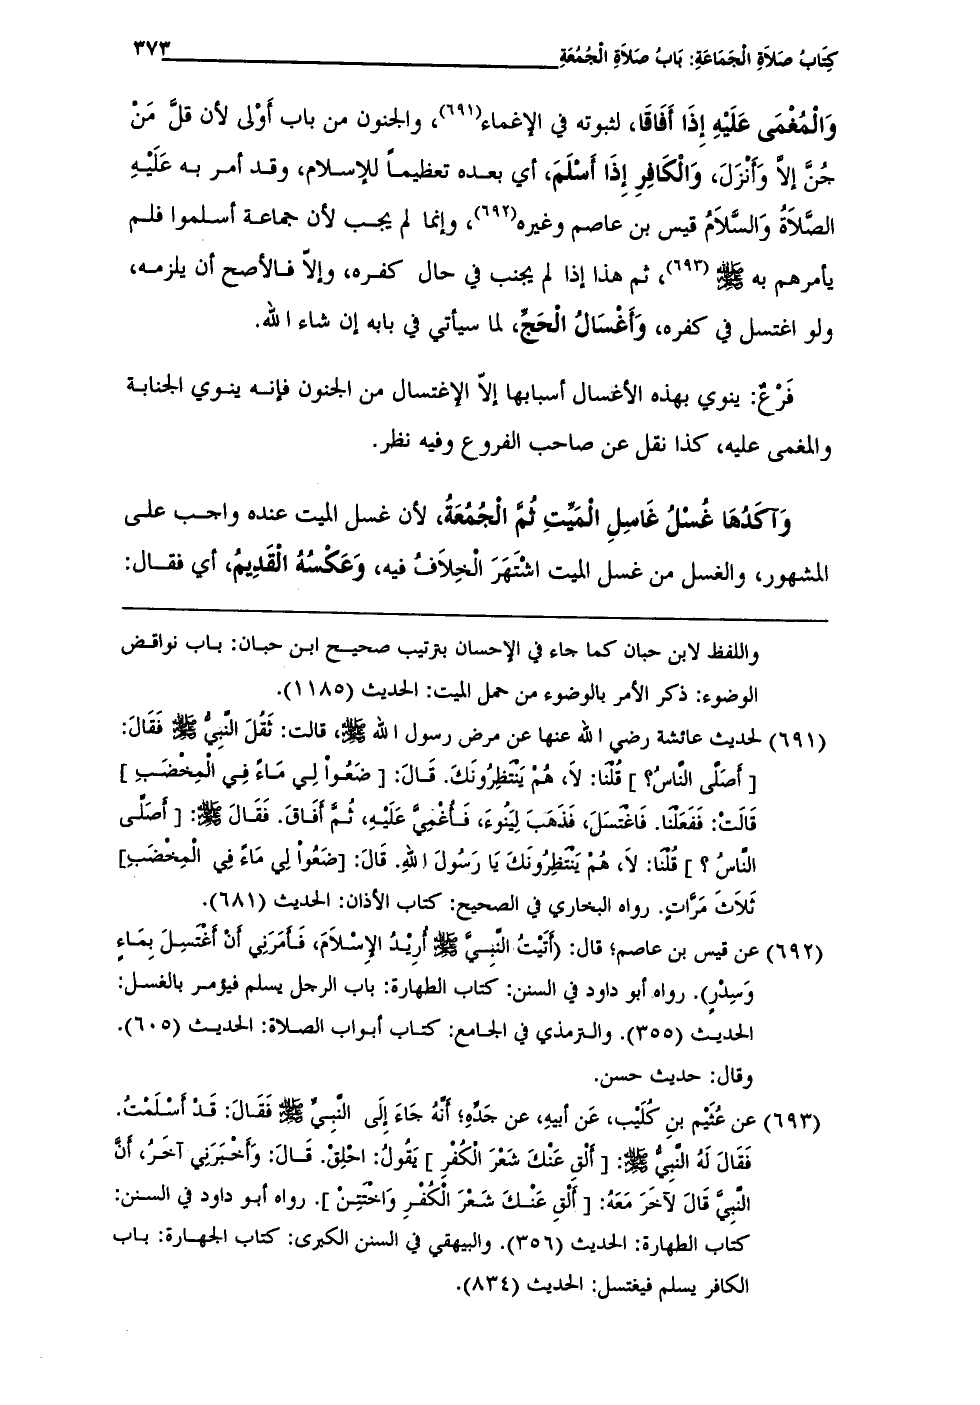 كِتَابُ صَلَاةِ الْجَمَاعَةِ: بَابُ صَلَاةِ الْجُمُعَةِ ٣٧٣
وَالْمُغْمَى عَلَيْهِ إِذَا أَفَاقَا، لثبوته في الإغماء(٦٩١)، والجنون من باب أَوْلى لأن قلَّ مَنْ
جُنَّ إلاَّ وَأَنْزَلَ، وَالْكَافِرِ إِذَا أَسْلَمَ، أي بعده تعظيماً للإسلام، وقد أمر به عَلَيْهِ
الصَّلَاةُ وَالسَّلَامُ قيس بن عاصم وغيره(٦٩٢)، وإنما لم يجب لأن جماعة أسلموا فلم
يأمرهم به ﷺ(٦٩٣)، ثم هذا إذا لم يجنب في حال كفره، وإلاّ فالأصح أن يلزمه،
ولو اغتسل في كفره، وَأَغْسَالُ الْحَجِّ، لما سيأتي في بابه إن شاء الله.
فَرْعٌ: ينوي بهذه الأغسال أسبابها إلاّ الإغتسال من الجنون فإنه ينوي الجنابة
والمغمى عليه، كذا نقل عن صاحب الفروع وفيه نظر.
وَآكَدُهَا غُسْلُ غَاسِلِ الْمَيِّتِ ثُمَّ الْجُمُعَةُ، لأن غسل الميت عنده واجب على
المشهور، والغسل من غسل الميت اشْتَهَرَ الْخِلَافُ فيه، وَعَكْسُهُ الْقَدِيمُ، أي فقال:
واللفظ لابن حبان كما جاء في الإحسان بترتيب صحيح ابن حبان: باب نواقض
الوضوء: ذكر الأمر بالوضوء من حمل الميت: الحديث (١١٨٥).
(٦٩١) لحديث عائشة رضي الله عنها عن مرض رسول الله ﷺ، قالت: ثَقُلَ النَّبِيُّ ﷺ فَقَالَ:
[أَصَلَّى النَّاسُ؟] قُلْنَا: لاَ، هُمْ يَنْتَظِرُونَكَ. قَالَ: [ضَعُواْ لِي مَاءً فِي الْمِخْضَبِ]
قَالَتْ: فَفَعَلْنَا. فَاغْتَسَلَ، فَذَهَبَ لِيَنُوءَ، فَأُغْمِيَّ عَلَيْهِ، ثُمَّ أَفَاقَ. فَقَالَ ﷺ: [أَصَلَّى
النَّاسُ؟] قُلْنَا: لاَ، هُمْ يَنْتَظِرُونَكَ يَا رَسُولَ اللهِ. قَالَ: [ضَعُواْ لِي مَاءً فِي الْمِخْضَبِ]
ثَلَاثَ مَرَّاتٍ. رواه البخاري في الصحيح: كتاب الأذان: الحديث (٦٨١).
(٦٩٢) عن قيس بن عاصم؛ قال: (أَتَيْتُ النَّبِيَّ ﷺ أُرِيْدُ الإِسْلَامَ، فَأَمَرَنِي أَنْ أَغْتَسِلَ بِمَاءٍ
وَسِدْرٍ). رواه أبو داود في السنن: كتاب الطهارة: باب الرجل يسلم فيؤمر بالغسل:
الحديث (٣٥٥). والترمذي في الجامع: كتاب أبواب الصلاة: الحديث (٦٠٥).
وقال: حديث حسن.
(٦٩٣) عن عُثَيْم بنِ كُلَيْب، عَن أبيهِ، عن جَدِّه؛ أَنَّهُ جَاءَ إِلَى النَّبِيِّ ﷺ فَقَالَ: قَدْ أَسْلَمْتُ.
فَقَالَ لَهُ النَّبِيُّ ﷺ: [أَلْقِ عَنْكَ شَعْرَ الْكُفْرِ] يَقُولُ: احْلِقْ. قَالَ: وَأَخْبَرَنِي آخَرُ، أَنَّ
النَّبِيَّ قَالَ لآخَرَ مَعَهُ: [أَلْقِ عَنْكَ شَعْرَ الْكُفْرِ وَاخْتَتِنْ]. رواه أبو داود في السنن:
كتاب الطهارة: الحديث (٣٥٦). والبيهقي في السنن الكبرى: كتاب الجهارة: باب
الكافر يسلم فيغتسل: الحديث (٨٣٤).